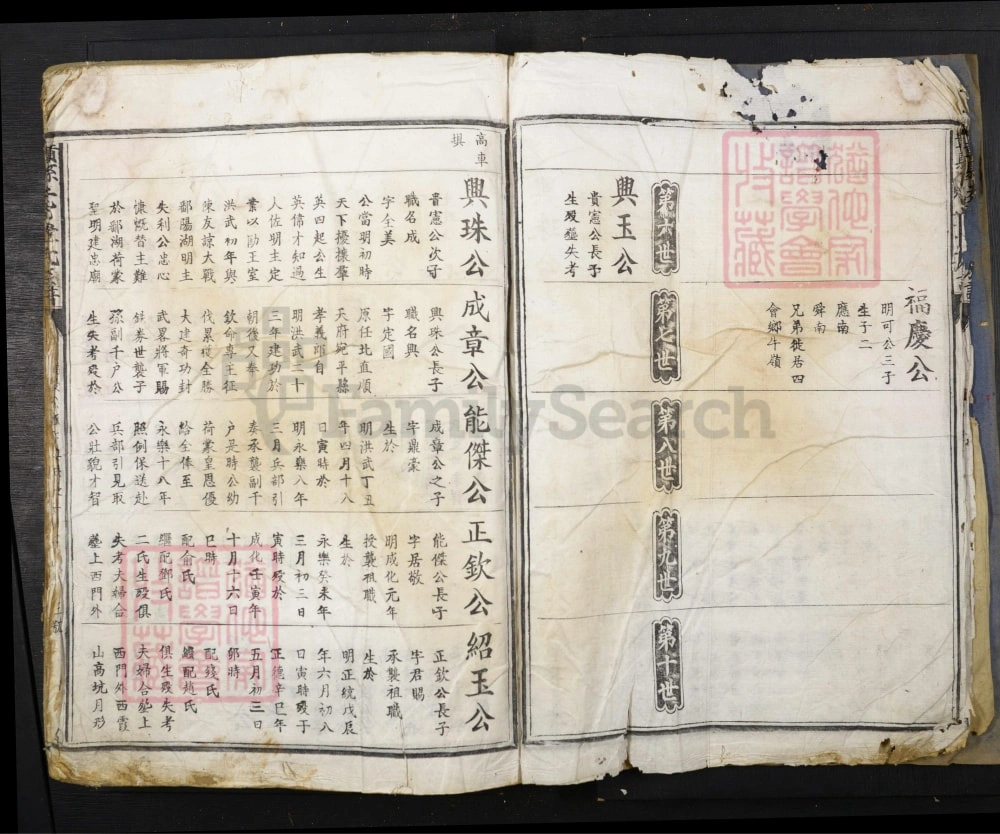 福慶公
明可公三子
生子二
應南
舜南
兄弟徙居四
會鄉牛嶺
第六世
第七世
第八世
第九世
第十世
興玉公
貴憲公長子
生歿塟失考
高車
撰
興珠公
貴憲公次子
職名成
字全美
公當明初時
天下擾攘羣
英四起公生
英偉才知過
人佐明主定
業以勛王室
洪武初年與
陳友諒大戰
鄱陽湖明主
失利公忠心
慷慨替主難
於鄱湖荷蒙
聖明建忠廟
成章公
興珠公長子
職名興
字定國
原任北直順
天府宛平縣
孝義鄉自
明洪武二十
三年建功於
朝後又奉
欽命尊王征
伐累枝全勝
大建奇功封
武畧將軍賜
鉄券世襲子
孫副千戶公
生失考歿於
能傑公
成章公之子
字鼎豪
生於
明洪武丁丑
年四月十八
日寅時於
明永樂八年
三月兵部引
奏承襲副千
戶是時公幼
荷蒙皇恩優
給全俸至
永樂十八年
照例保送赴
兵部引見取
公壯貌才智
正欽公
能傑公長子
字居敬
明成化元年
授襲祖職
生於
永樂癸未年
三月初三日
寅時歿於
成化壬寅年
十月十六日
巳時
配俞氏
繼配鄧氏
二氏生歿俱
失考夫婦合
塟上西門外
紹玉公
正欽公長子
字君賜
承襲祖職
生於
明正統戊辰
年六月初八
日寅時歿于
正德辛巳年
五月初三日
卯時
配錢氏
繼配趙氏
俱生歿失考
夫婦合塟上
西門外西霞
山高坑月形
FamilySearch